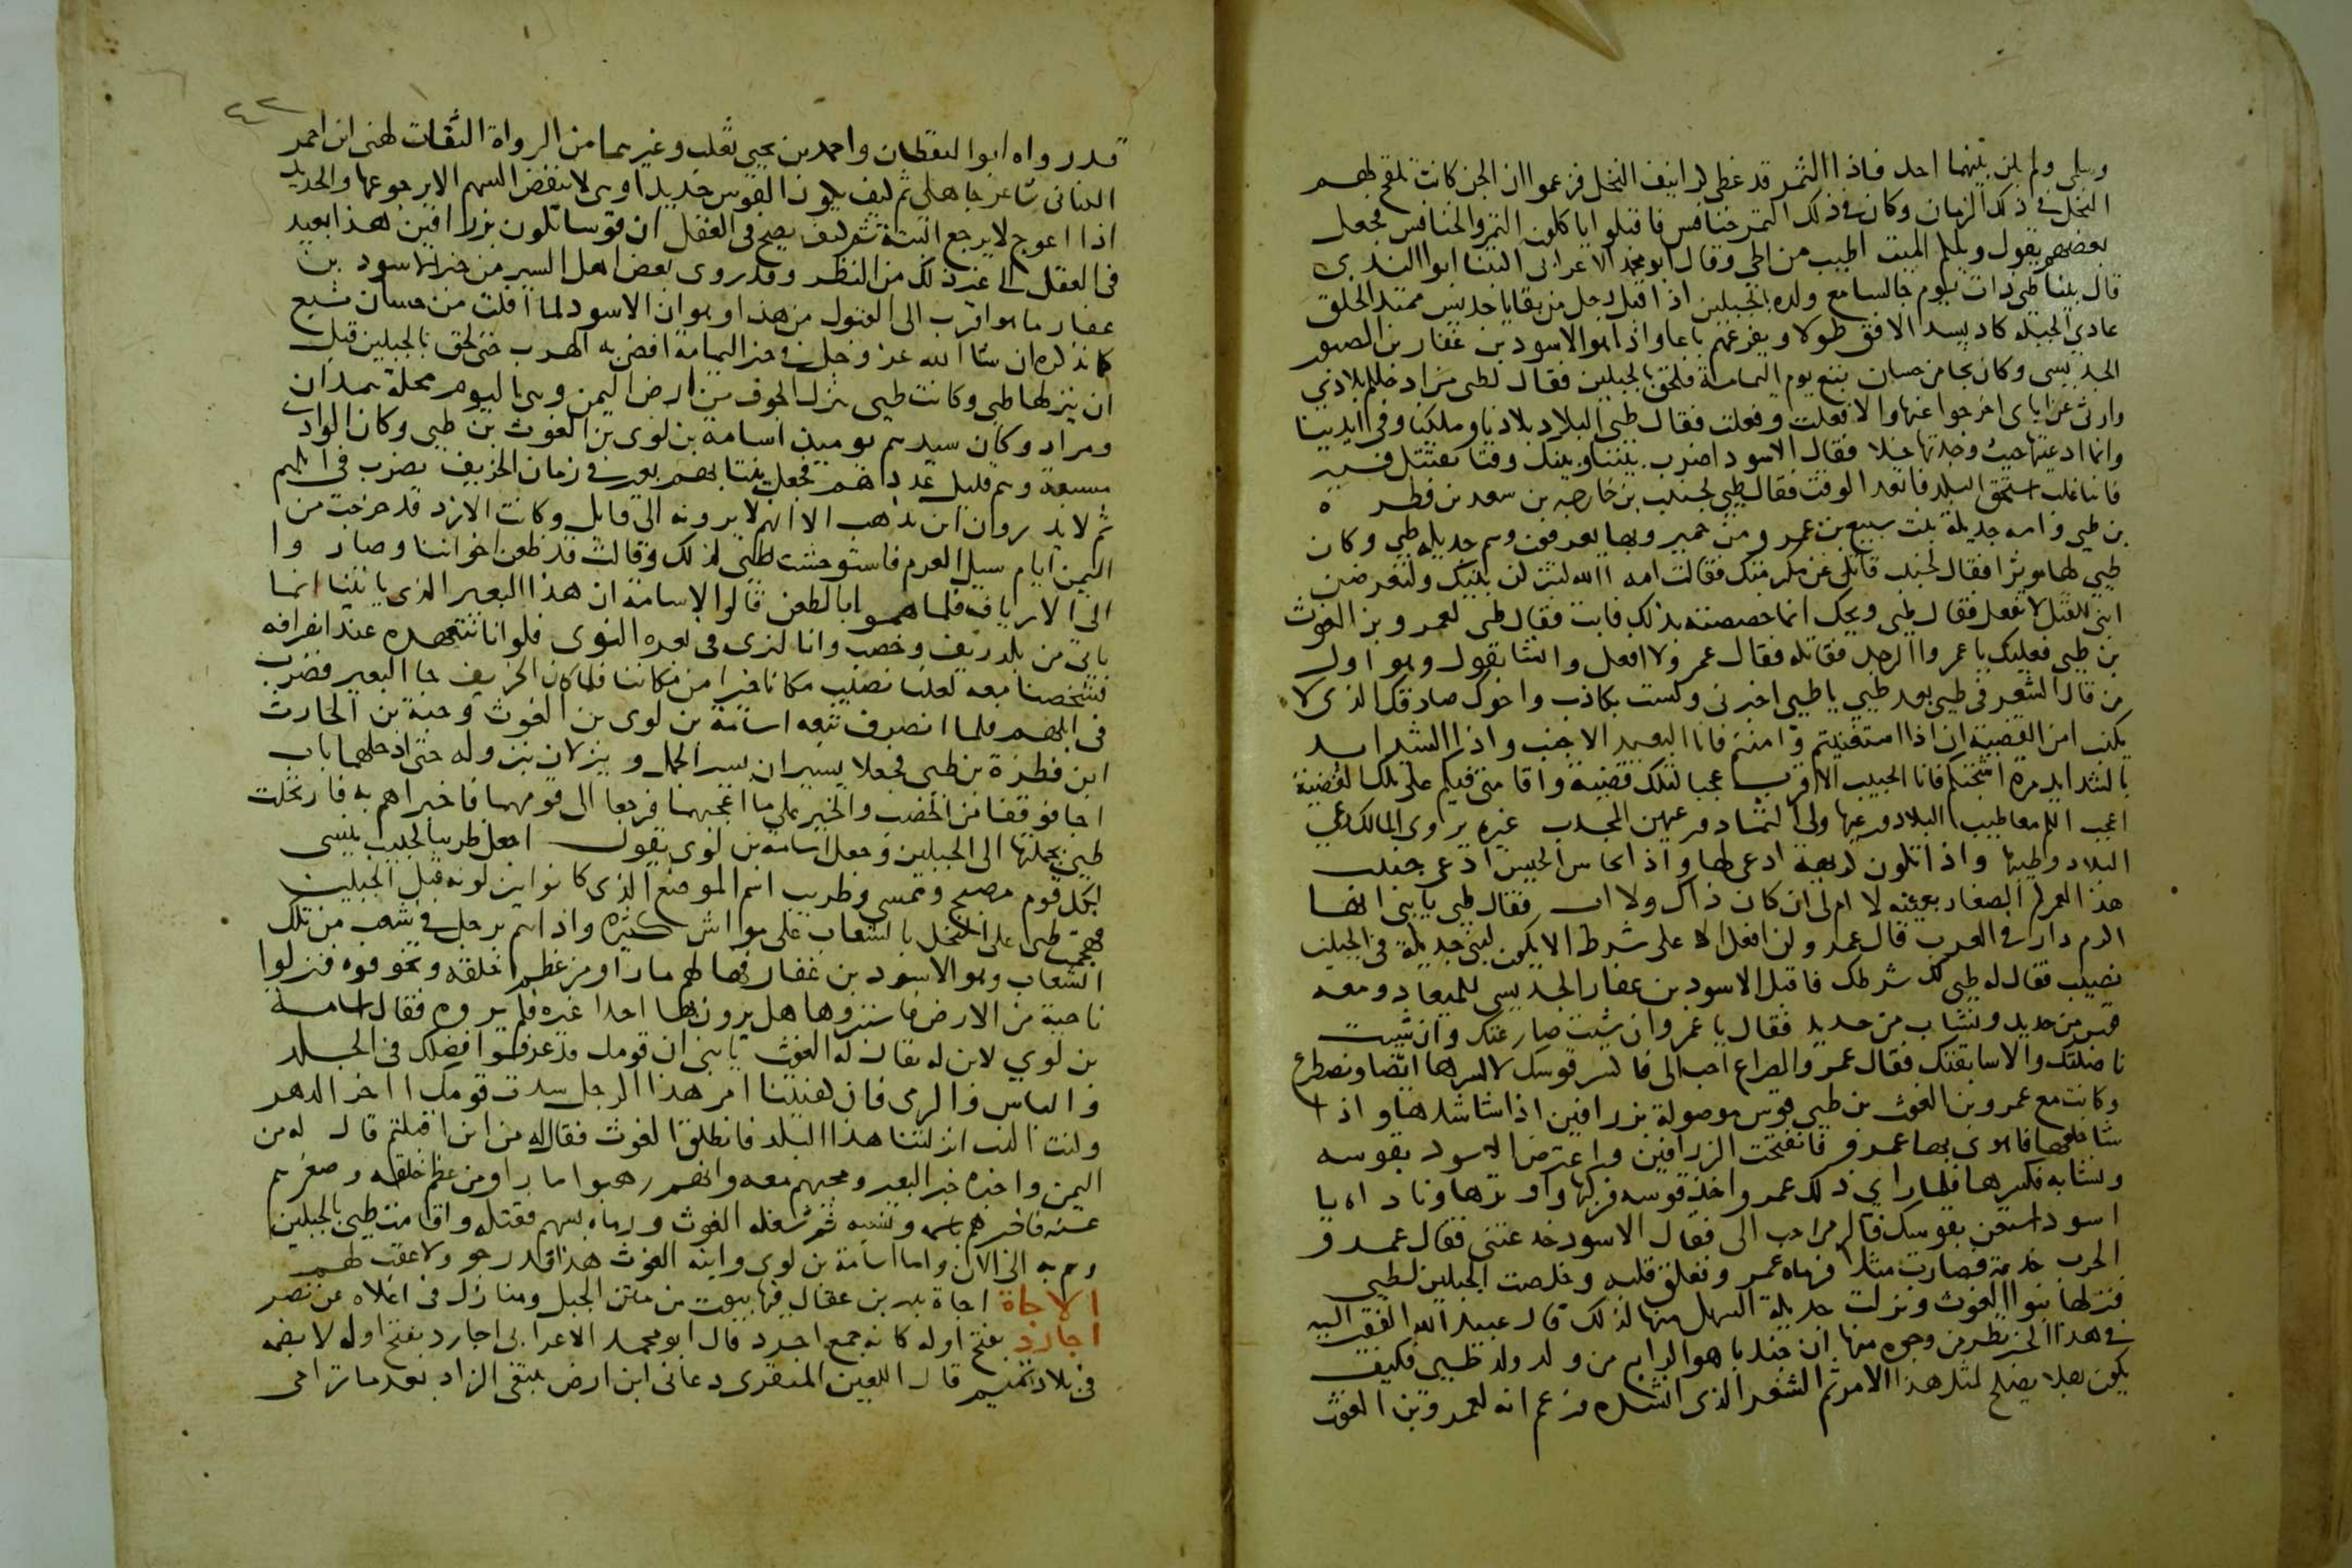 وسلمى ولم يكن بينهما احد فاذا الثمر قد غطى كرانيف النخل فزعموا ان الجن كانت تلقح لهم
النخل في ذلك الزمان وكان في ذلك التمر خنافس فاقبلوا ياكلون التمر والخنافس فجعل
بعضهم يقول ويلكم الميت اطيب من الحي وقال ابو محمد الاعرابي اكتتبنا ابو الندى
قال بينا طي ذات يوم جالسا مع ولده بالجبلين اذ اقبل رجل من بقايا جديس ممتد الخلق
عادي الجبلة كاد يسد الافق طولا ويفرعهم باعا واذا هو الاسود بن عفار بن الصبور
الجديسي وكان نجا من حسان تبع يوم اليمامة فلحق بالجبلين فقال لطي من ادخلكم بلادي
وارثي عن اباي اخرجوا عنها والا فعلت وفعلت فقال طي البلاد بلادنا وملكنا وفي ايدينا
وانما ادعيتها حيث وجدتها خلا فقال الاسود اضرب بيننا وبينك وقتا نقتتل فيه
فاينا غلب استحق البلد فاتعد الوقت فقال طي لجندب بن خارجه بن سعد بن فطره
بن طي وامه جديلة بنت سبيع بن عمرو من حمير وبها يعرفون وهم جديله طي وكان
طيي لها موثرا فقال لجندب قاتل عن مكرمتك فقالت امه الله لتتركن بنيك ولتعرضن
ابني للقتل لا تفعل فقال طي ويحك انما خصصته بذلك فابت فقال طي لعمرو بن الغوث
بن طيي فعليك يا عمرو الرجل فقاتله فقال عمرو لا افعل وانشا يقول وهو اول
من قال الشعر في طي بعد طيي يا طيي اخبرني ولست بكاذب واخوك صادقك الذي لا
يكذب امن القضية ان اذا استغنيتم وامنتم فانا البعيد الاجنب واذا الشدايد
بالشدايد مرة اشجتكم فانا الحبيب الاقرب عجبا لتلك قضية واقامتي فيكم على تلك القضية
اعجب الكم معا طيب البلاد ورعيها ولي الثماد ورعيهن المجدب غيره يروي المالك رعي
البلاد وطيبها واذا تكون كريهة ادعى لها واذا يحاس الحيس يدعى جندب
هذا لعمركم الصغار بعينه لا ام لي ان كان ذاك ولا اب فقال طي يا بني انها
اكرم دار في العرب قال عمرو لن افعل الا على شرط الا يكون لبني جديلة في الجبلين
نصيب فقال له طي لك شرطك فاقبل الاسود بن عفار الجديسي للميعاد ومعه
قوس من حديد ونشاب من حديد فقال يا عمرو ان شيت صارعتك وان شيت
ناضلتك والا سايفتك فقال عمرو الصراع احب الي فاكسر قوسك لاكسرها ايضا ونصطرع
وكانت مع عمرو بن الغوث بن طيي قوس موصولة بزرافين اذا شا شدها واذا
شا خلعها فاهوى بها عمرو فانفتحت الزرافين واعترض الاسود بقوسه
ونشابه فكسرها فلما راى ذلك عمرو اخذ قوسه فركبها واوترها وناداه يا
اسود استعن بقوسك فالرمي احب الي فقال الاسود خدعتني فقال عمرو
الحرب خدعة فصارت مثلا فرماه عمرو ففلق قلبه وخلصت الجبلين لطيي
فنزلها بنو الغوث ونزلت جديلة السهل منها لذلك قال عبيد الله الفقير اليه
في هذا الخبر نظر من وجوه منها ان جندبا هو الرابع من ولد ولد طيي فكيف
يكون رجلا يصلح لمثل هذا الامر ثم الشعر الذي انشده وزعم انه لعمرو بن الغوث
٤٢
قد رواه ابو اليقظان واحمد بن يحيى ثعلب وغيرهما من الرواة الثقات لهني ابن احمر
الكناني شاعر جاهلي ثم كيف يكون القوس حديدا وهي لا تنفض السهم الا برجوعها والحديد
اذا اعوج لا يرجع البتة ثم كيف يصح في العقل ان قوسا تكون بزرافين هذا بعيد
في العقل الى غير ذلك من النظر وقد روى بعض اهل السير من خبر الاسود بن
عفار ما هو اقرب الى القبول من هذا وهو ان الاسود لما افلت من حسان تبع
كما نذكره ان شا الله عز وجل في خبر اليمامة افضى به الهرب حتى لحق بالجبلين قبل
ان ينزلها طي وكانت طيي تنزل الجوف من ارض اليمن وهي اليوم محلة همدان
ومراد وكان سيدهم يوميذ اسامة بن لوي بن الغوث بن طيي وكان الوادي
مسبعة وهم قليل عددهم فجعل ينتابهم بعير في زمان الخريف يضرب في ابلهم
ثم لا يدرون اين يذهب الا انهم لا يرونه الى قابل وكانت الازد قد خرجت من
اليمن ايام سيل العرم فاستوحشت طيي لذلك وقالت قد ظعن اخواننا وصاروا
الى الارياف فلما هموا بالظعن قالوا لاسامة ان هذا البعير الذي ياتينا انما
ياتي من بلد ريف وخصب وانا لنرى في بعره النوى فلو انا نتعهده عند انصرافه
فشخصنا معه لعلنا نصيب مكانا خيرا من مكاننا فلما كان الخريف جا البعير فضرب
في ابلهم فلما انصرف تبعه اسامة بن لوي بن الغوث وحبة بن الحارث
ابن فطرة بن طيي فجعلا يسيران بسير الجمل وينزلان بنزوله حتى ادخلهما باب
اجا فوقفا من الخصب والخير على ما اعجبهما فرجعا الى قومهما فاخبراهم به فارتحلت
طيي بجملتها الى الجبلين وجعل اسامة بن لوي يقول اجعل ظريبا كحبيب ينسى
لكل قوم مصبح وممسى وظريب اسم الموضع الذي كانوا ينزلونه قبل الجبلين
فهجمت طيي على النخل بالشعاب على مواش كثيره واذا هم برجل في شعب من تلك
الشعاب وهو الاسود بن عفار فهالهم ما راوا من عظم خلقه وتخوفوه فنزلوا
ناحية من الارض فاستبروها هل يرون بها احدا غيره فلم يروه فقال اسامة
بن لوي لابن له يقال له الغوث يا بني ان قومك قد عرفوا فضلك في الجلد
والباس والرمي فان كفيتنا امر هذا الرجل سدت قومك اخر الدهر
وكنت الذي انزلتنا هذا البلد فانطلق الغوث فقال له من اين اقبلتم قال له من
اليمن واخبره خبر البعير ومجيهم معه وانهم رهبوا ما راوا من عظم خلقه وصغرهم
عنه فاخبرهم باسمه ونسبه ثم شغله الغوث ورماه بسهم فقتله واقامت طيي بالجبلين
وهم به الى الان واما اسامة بن لوي وابنه الغوث هذا فدرجوا ولا عقب لهم
الاجاة اجاة بدر بن عقال فيها بيوت من متن الجبل ومنازل في اعلاه عن نصر
اجارد بفتح اوله كانه جمع اجرد قال ابو محمد الاعرابي اجارد بفتح اوله لا بضمه
في بلاد تميم قال اللعين المنقري دعاني ابن ارض يبتغي الزاد بعد ما ترامى